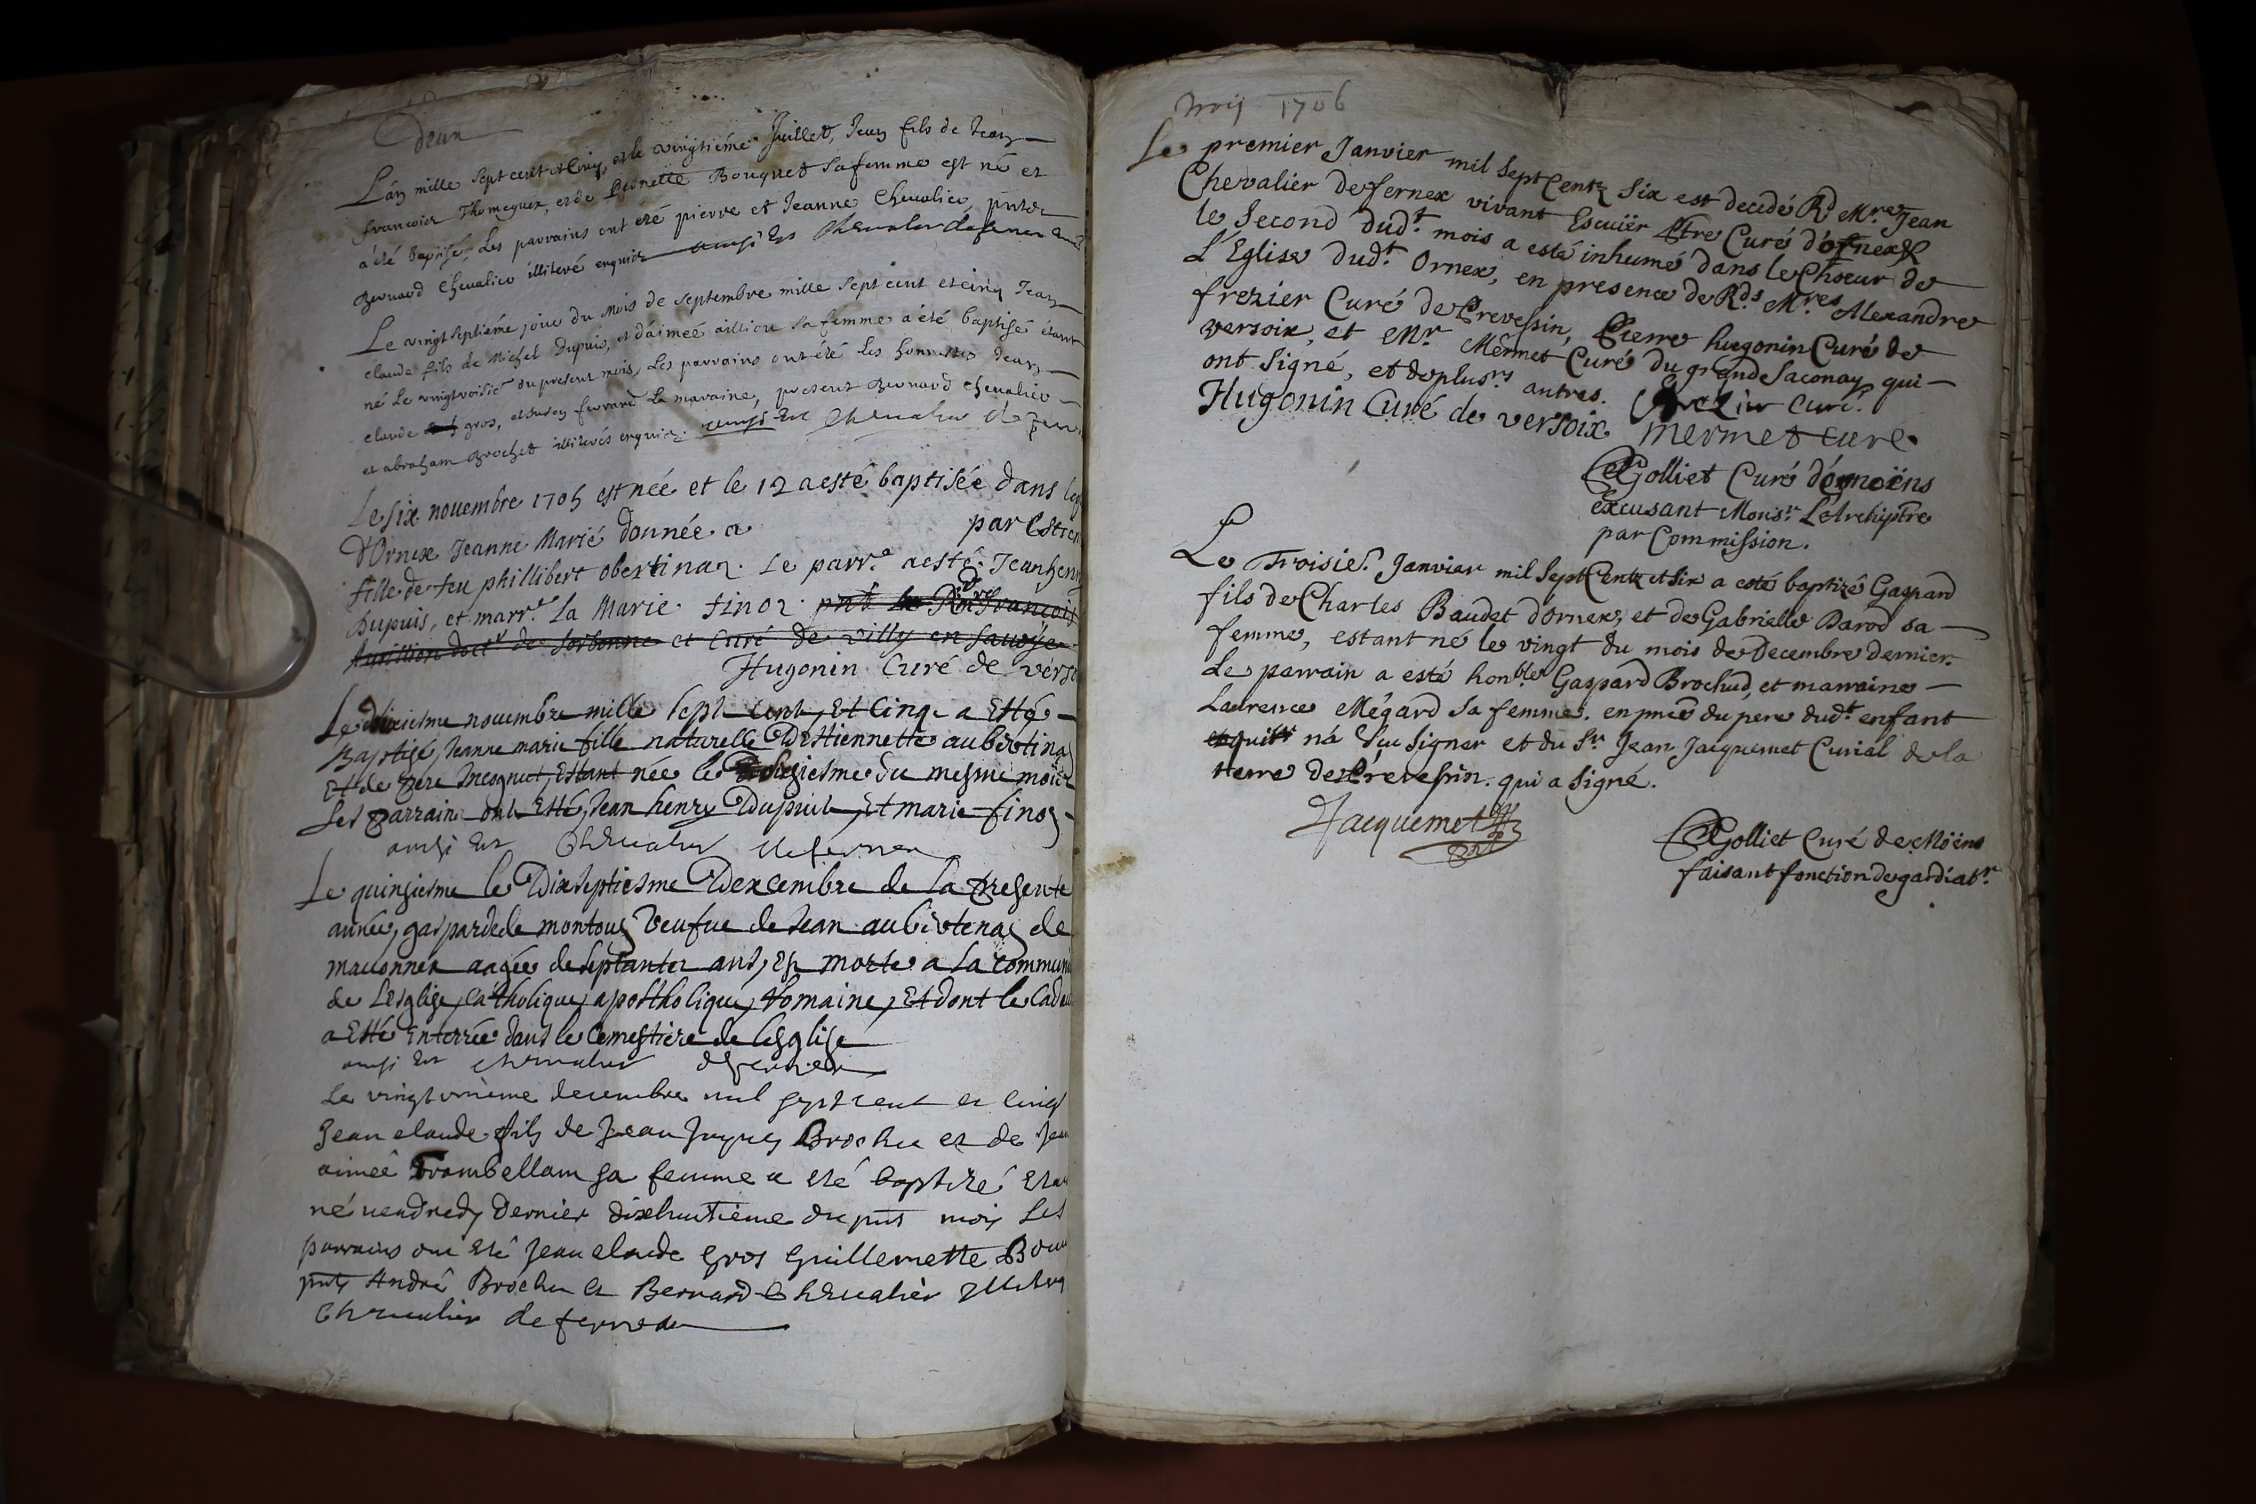 deux
L'an mille sept cent et cinq, et le vingtiéme Juillet, Jean fils de Jean
francois Thomeguex, et de Pernette Bouquet sa femme est né et
a été baptisé, Les parrains ont été pierre et Jeanne Chevalier, pnts
Bernard Chevalier illiteré enquis ainsi est Chevalier defernex curé
Le vingt septiéme jour du mois de septembre mille sept cent et cinq Jean
claude fils de Michel Dupuis, et d'aimeé sa femme a été baptisé étant
né le du present mois, Les parrains ont été les honnestes Jean
claude gros, et la maraine, present Bernard chevalier
et abraham Brochet illiterés enquis. ainsi est Chevalier de fern
Le six novembre 1705 est née et le 12 a esté baptisée dans leg
d'Ornex Jeanne Marie donnée a par Estien
fille de feu phillibert obertinaz. Le parr.n a esté Jean henry
Dupuis, et marr.e la Marie finoz. pnt Rd francois
doctr de Sorbonne et Curé de villy en Savoÿe
Hugonin Curé de verso
Le dixiesme novembre mille sept cent, Et Cinq, a Esté
Baptisé, Jeanne marie fille naturelle D'Estiennette aubertina
Et de Pere Incognut, Estant née le du mesme mois
Les parrains ont Esté, Jean henry Dupuis, Et marie finoz
ainsi est Chevalier defernex
Le quinziesme le Dixseptiesme Dexcembre de la presente
année, gasparde de montouz veufve de Jean aubertenaz de
maconnex aagée de septante ans, Est morte a la commun
de L'esglise, Catholique, apostholique, Romaine, Et dont le Cada
a Esté Enterrée dans le Cemestiere de lesglise
ainsi est chevalier defernex
Le vingtunieme decembre mil sept cent et cinq
Jean claude fils de Jean Jaques Brochu et de Jean
aimeé Trambellam sa femme a eté baptizé etan
né vendredy dernier dixhuitieme du pnt mois Les
parrains ont eté Jean claude gros Guillemette Bou
pnts André Brochu et Bernard Chevalier
Chevalier defernex
1706
Le premier Janvier mil sept Centz six est decedé Rd Mre Jean
Chevalier de fernex vivant Escuïer Ptre Curé d'ornex &
le second dudt mois a esté inhumé dans le Choeur de
L'Eglise dudt Ornex, en presence de Rds Mres Alexandre
frezier Curé de Prevessin, Pierre hugonin Curé de
versoix, et Mr Mermet Curé du grand Saconay qui
ont signé, et de plusrs autres. frezier curé.
Hugonin Curé de versoix Mermet curé.
Golliet Curé d'ornoïens
Excusant Monsr L'Archiptre
par Commission.
Le Troisie. Janvier mil sept Centz et six a esté baptizé Gaspard
fils de Charles Baudet d'Ornex, et de Gabrielle Barod sa
femme, estant né le vingt du mois de Decembre dernier.
Le parrain a esté honble Gaspard Brochud, et marraine
Laurence Mégard sa femme. en pnce du pere dudt enfant
enquis n'a sceu signer et du Sr Jean Jacquemet Curial de la
terre de Prevessin. qui a signé.
Jacquemet
Golliet Curé de Moëns
faisant fonction de gardiatr.